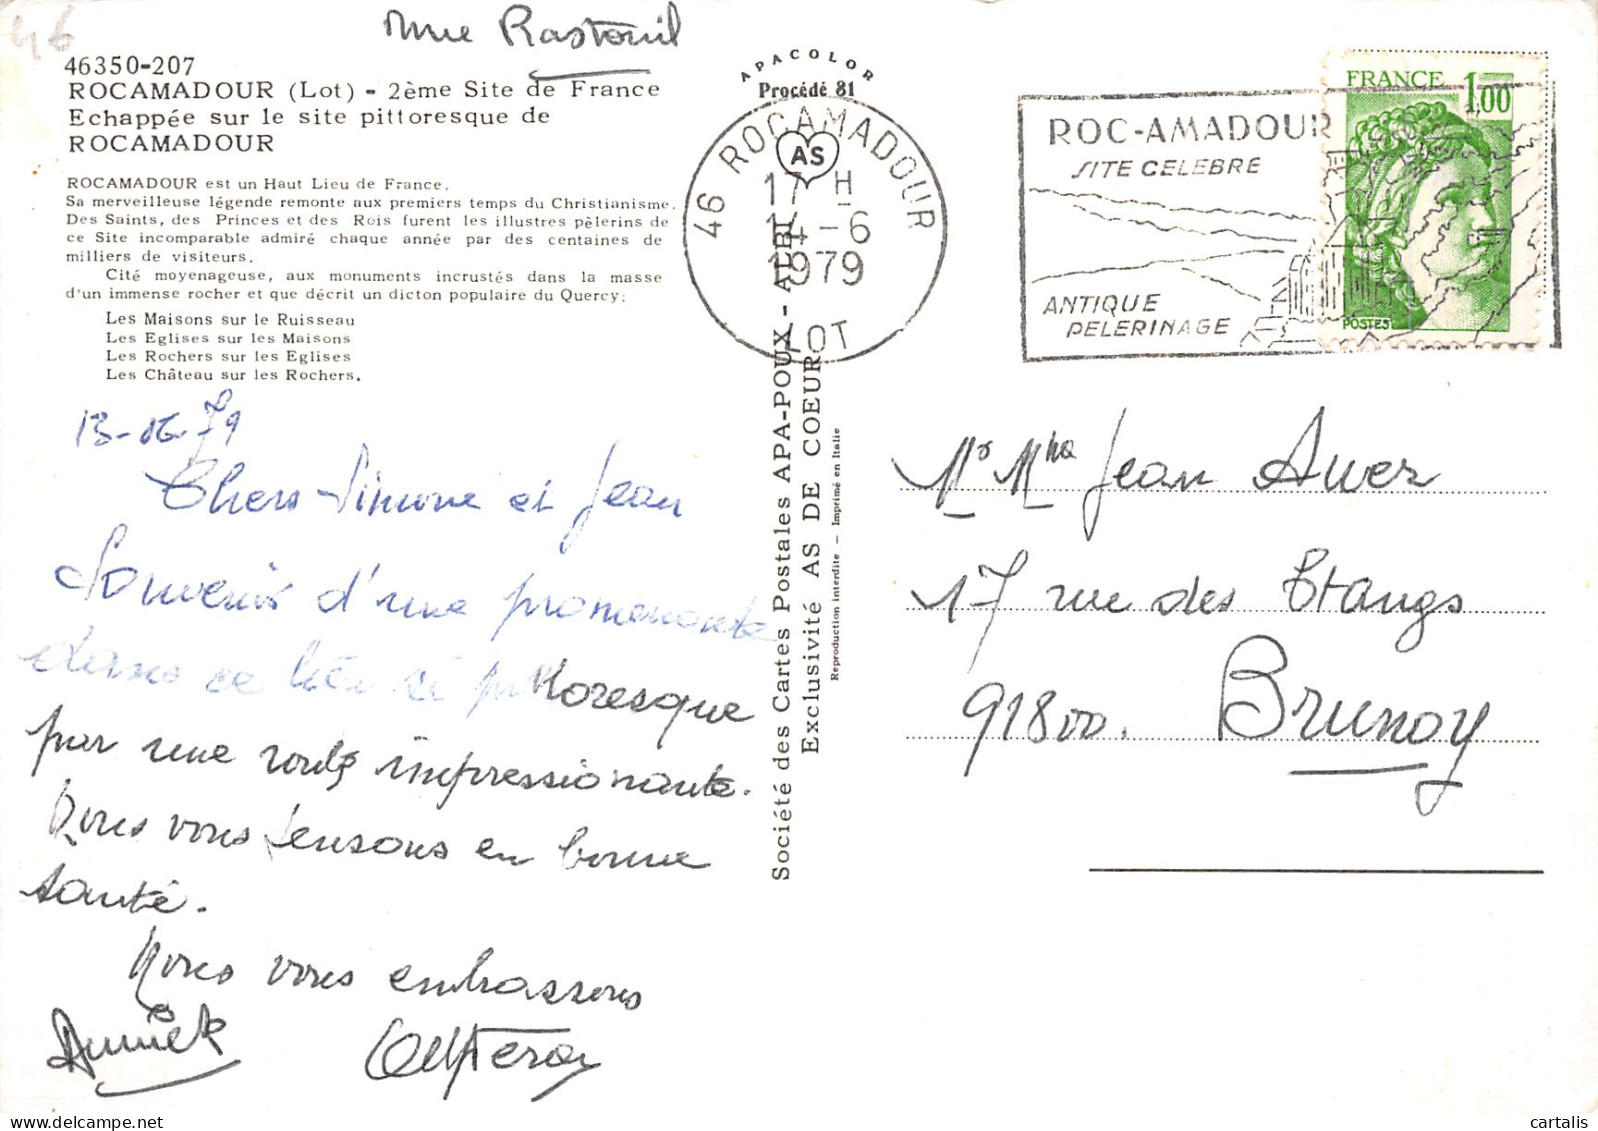 46
Mme Rastouil
46350-207
ROCAMADOUR (Lot) - 2ème Site de France
Echappée sur le site pittoresque de
ROCAMADOUR
ROCAMADOUR est un Haut Lieu de France.
Sa merveilleuse légende remonte aux premiers temps du Christianisme.
Des Saints, des Princes et des Rois furent les illustres pèlerins de
ce Site incomparable admiré chaque année par des centaines de
milliers de visiteurs.
Cité moyenageuse, aux monuments incrustés dans la masse
d'un immense rocher et que décrit un dicton populaire du Quercy:
Les Maisons sur le Ruisseau
Les Eglises sur les Maisons
Les Rochers sur les Eglises
Les Château sur les Rochers.
13-06-79
Chers Simone et Jean
Souvenir d'une promenade
dans ce lieu si pittoresque
par une route impressionnante.
Nous vous pensons en bonne
santé.
Nous vous embrassons
Annick
APACOLOR
Procédé 81
AS
46 ROCAMADOUR
17 H
14-6
1979
LOT
Société des Cartes Postales APA-POUX - ALBI
Exclusivité AS DE COEUR
Reproduction interdite - Imprimé en Italie
ROC-AMADOUR
SITE CELEBRE
ANTIQUE
PELERINAGE
FRANCE 1,00
POSTES
Mr Mme Jean Auer
17 rue des Etangs
91800. Brunoy
cartalis